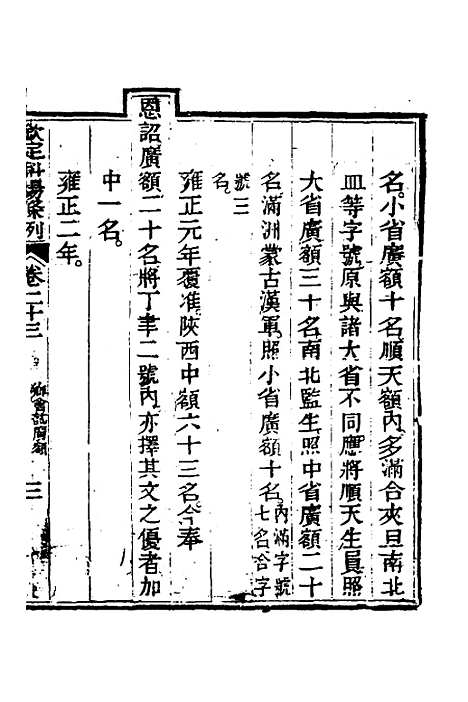 名。小省廣額十名。順天額內多滿合夾旦南北
皿等字號原與諸大省不同。應將順天生員照
大省廣額三十名。南北監生照中省廣額二十
名。滿洲蒙古漢軍照小省廣額十名。內滿字號七名合字
號三
名。
雍正元年覆准。陝西中額六十三名。今奉
恩詔廣額二十名。將丁聿二號內亦擇其文之優者加
中一名。
雍正二年。
欽定科場條列 卷二十三 鄉會試廣額 三